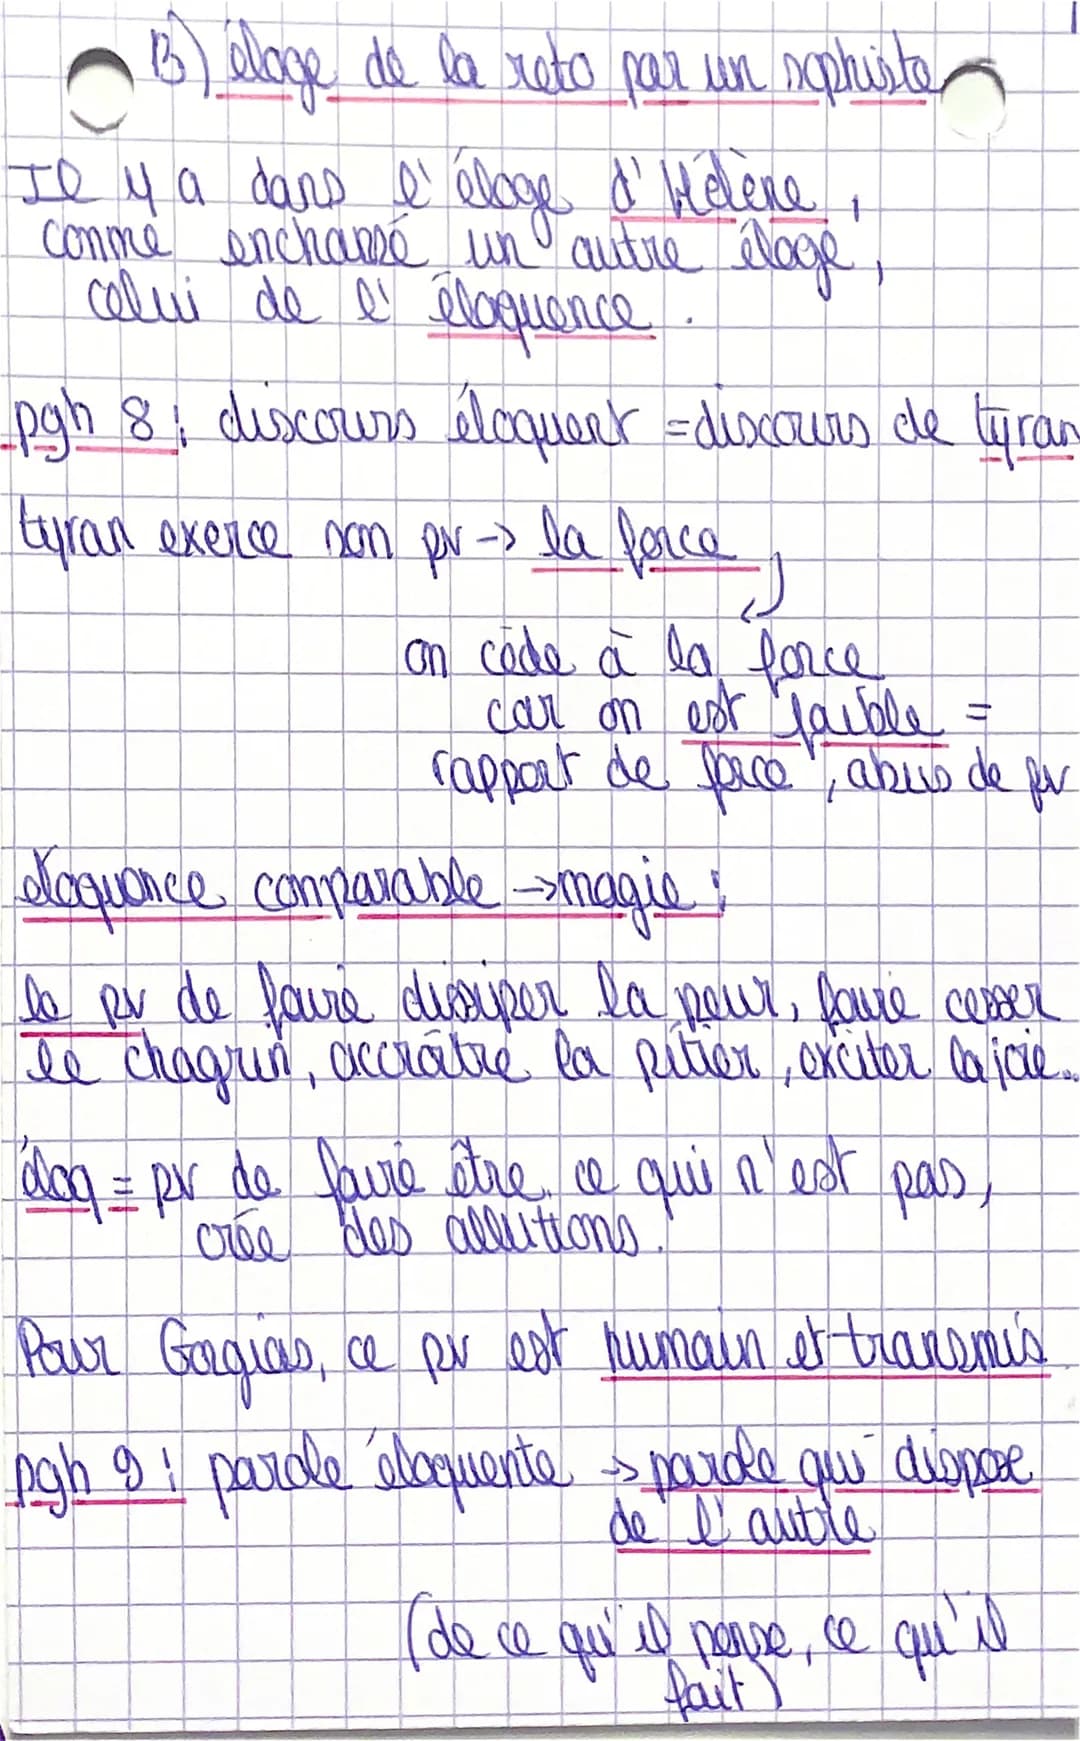 B) éloge de la reto par un sophiste
Il y a dans l'éloge d'Hélène,
comme enchassé un autre éloge,
celui de l'éloquence.
pgh 8 : discours éloquent = discours de tyran
tyran exerce son pv -> la force
on cède à la force
car on est faible =
"rapport de force", abus de pv
éloquence comparable -> magie :
le pv de faire dissiper la peur, faire cesser
le chagrin, accraître la pitier, exciter la joie..
éloq = pv de faire être ce qui n'est pas,
crée des allutions.
Pour Gorgias, ce pv est humain et transmis
pgh 9 : parole éloquente -> parole qui dispose
de l'autre
(de ce qu'il pense, ce qu'il
fait)